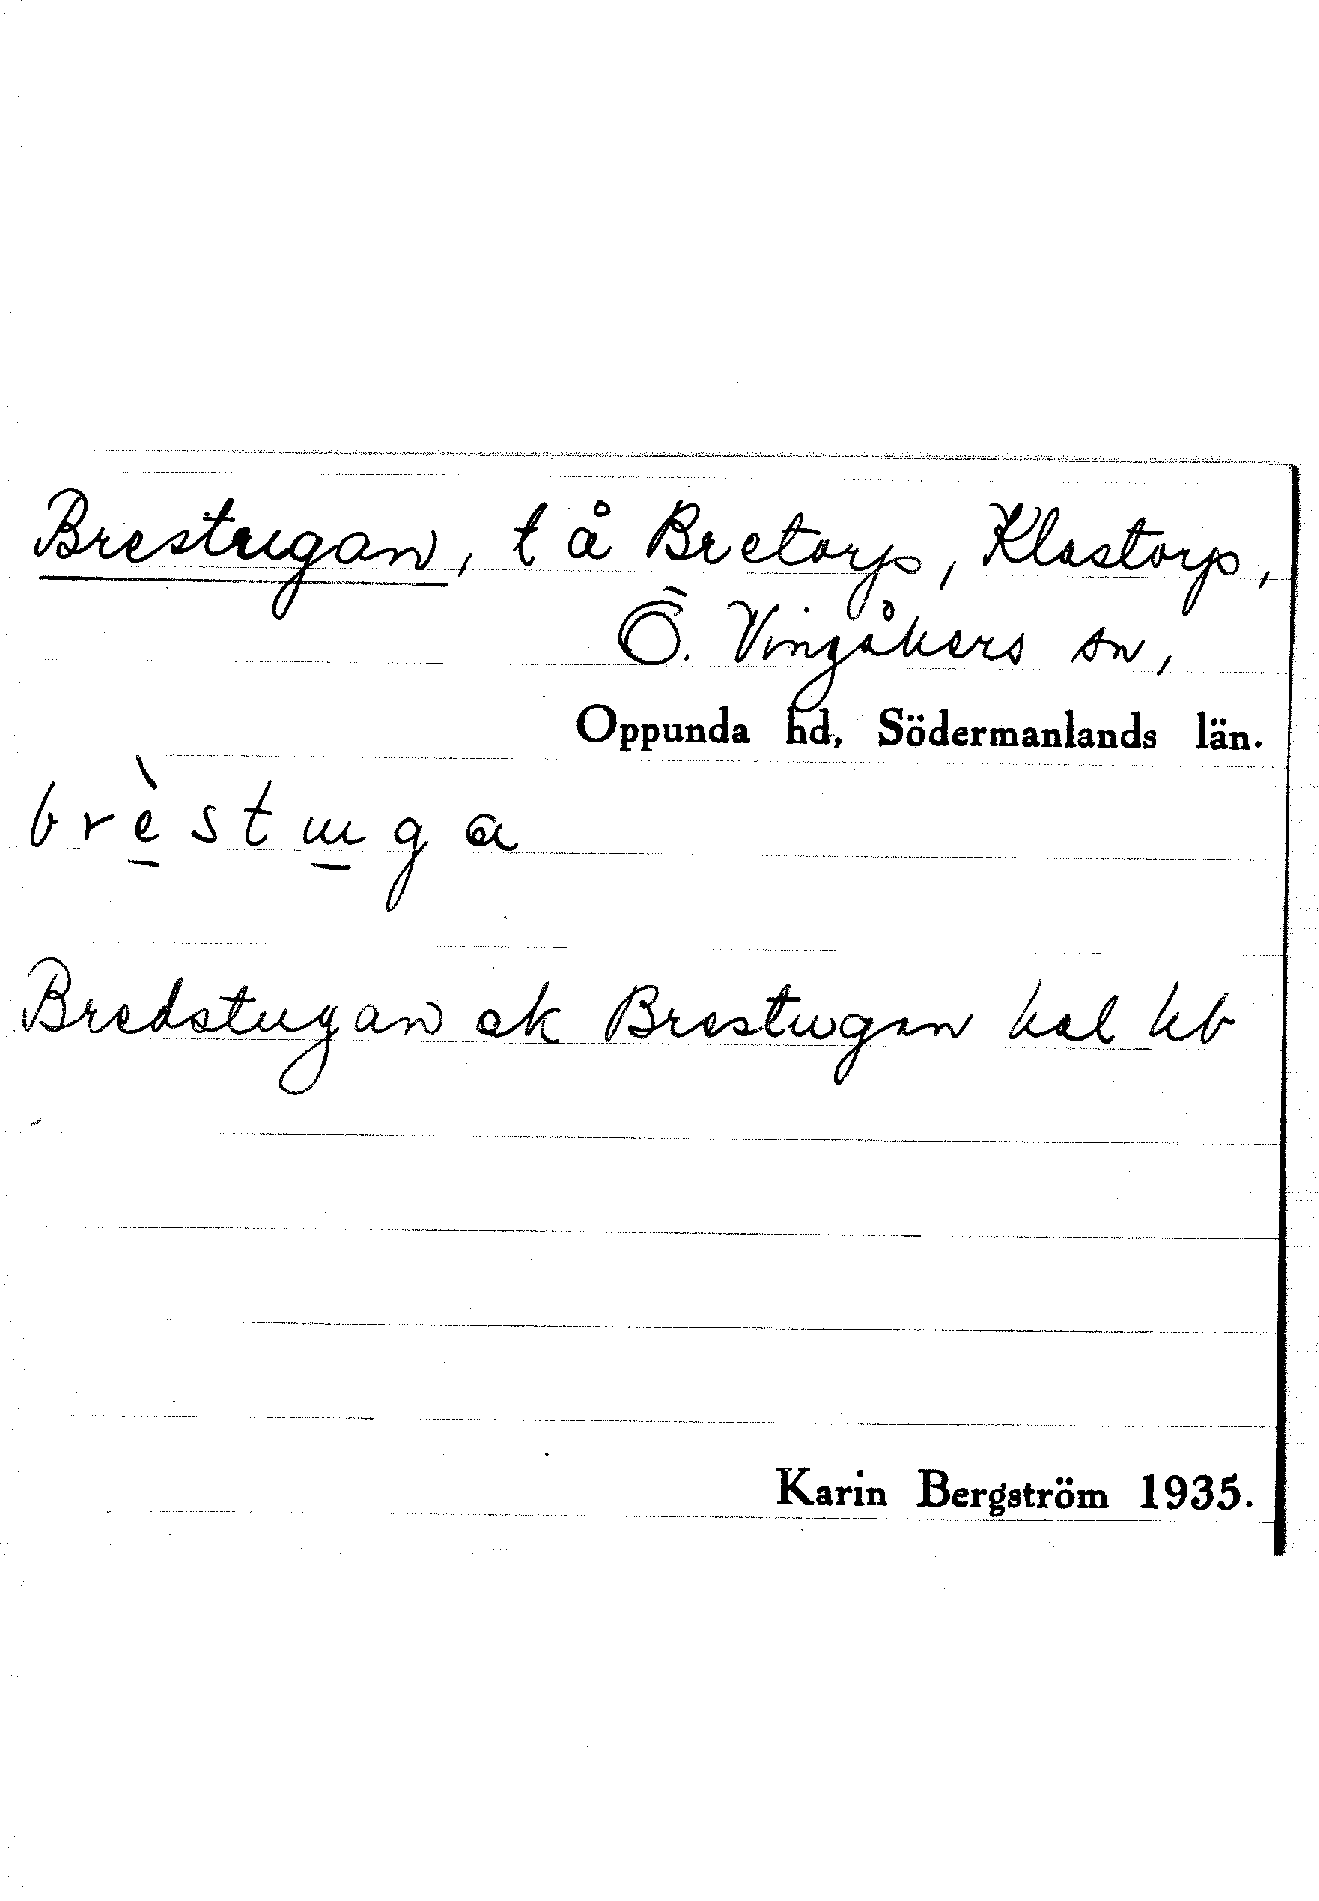 Brestugan, t å Bretorp, Klastorp,
Ö. Vingåkers sn,
Oppunda hd, Södermanlands län.
brèstuga
Bredstugan ek Brestugan hal kb
Karin Bergström 1935.